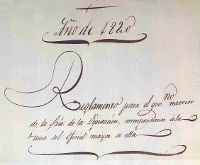 Año de 1820
Reglamento para el govno interior
de la Sria de la Diputación, correspondiente a la
mesa del Oficial mayor de ella.